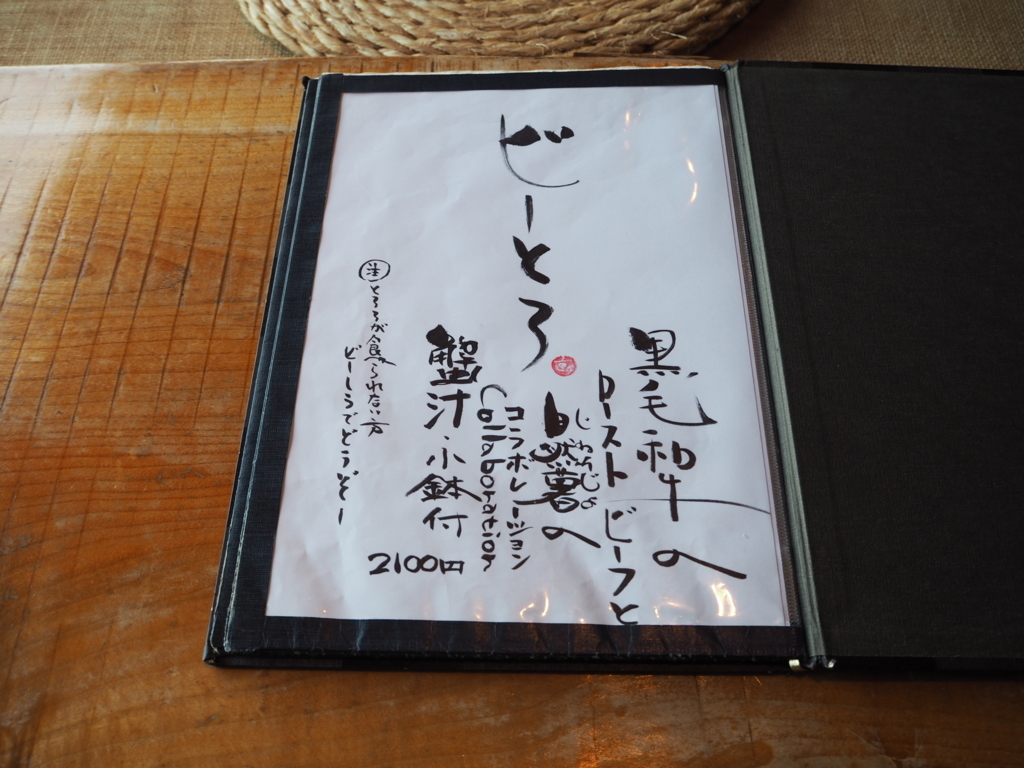 ビーとろ
黒毛和牛の
ローストビーフと
自然薯の
じねんじょ
コラボレーション
Collaboration
蟹汁・小鉢付
2100円
注 とろろが食べられない方
でどうぞー